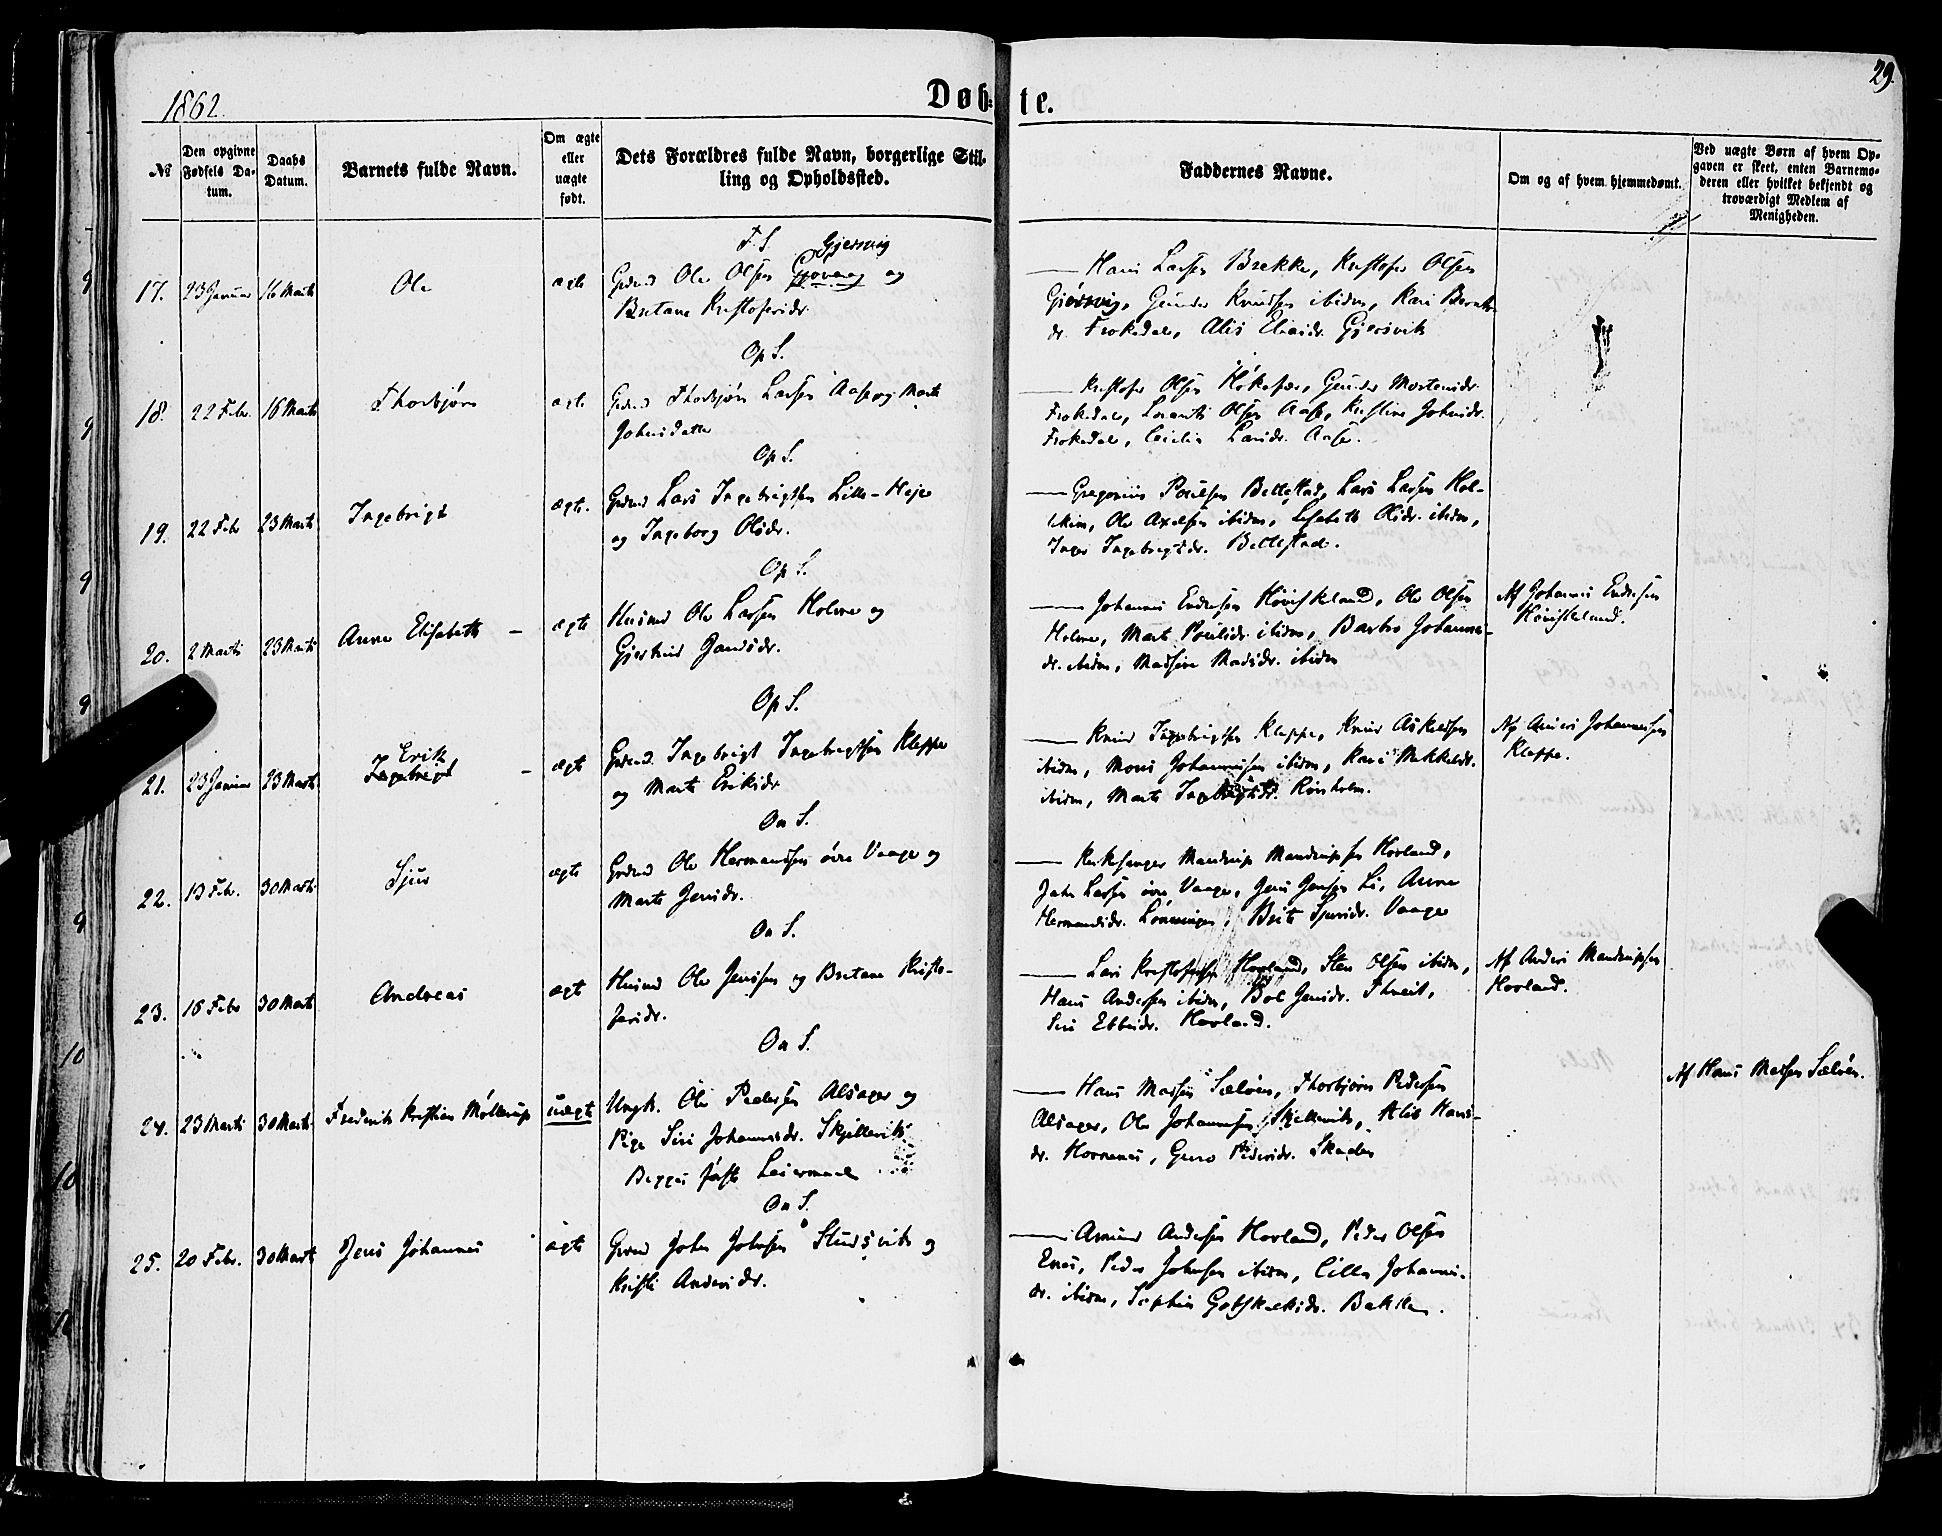 1862.
Døbte.
29.
№
Den opgivne Fødsels Datum.
Daabs Datum.
Barnets fulde Navn.
Om ægte eller uægte født.
Dets Forældres fulde Navn, borgerlige Stilling og Opholdssted.
Faddernes Navne.
Om og af hvem hjemmedømt.
Ved uægte Børn af hvem Opgaven er skeet, enten Barnemoderen eller hvilket bekjendt og troværdigt Medlem af Menigheden.
17. 23 Januar 16 Marts Ole ægte
F. S. Gjersvig
Grdmd Ole Olsen og
Bretane Kristofersdr.
Hans Larsen Brekke, Kristofer Olsen
Gjersvig, Gunder Knudsen ibidm, Kari Berents-
dr. Frokedal, Alis Eliasdr. Gjersvik
18. 22 Febr. 16 Marts Thorbjørn ægte
Op S.
Grdmd Thorbjørn Larsen Aase og Marte
Johnsdatter
Kristofer Olsen, Gunder Mortensdr.
Frokedal, Lorents Olsen Aase, Kristine Johnsdr.
Frokedal, Cecilia Larsdr. Aase.
19. 22 Febr 23 Marts Ingebrigt ægte.
Op S.
Grdmd Lars Ingebrigtsen Lille-Heje
og Ingeborg Olsdr.
Gregorius Poulsen Bellestad, Lars Larsen Hol-
, Ole Axelsen ibidm, Lisabeth Olsdr. ibidm,
Inger Ingebrigtsdr. Bellestad.
20. 2 Marts 23 Marts Anne Elisabeth - ægte
Op S.
Husmd Ole Larsen Holme og
Gjertrud
Johannes Endresen, Ole Olsen
Holme, Marte Poulsdr. ibidm, Barbro Johannes-
dr. ibidm, Madsine Madsdr. ibidm
Af Johannes Endresen
21. 23 Januar 23 Marts Erik
Ingebrigt - ægte
Op S.
Grdmd Ingebrigt Ingebrigtsen Kleppe
og Marte Eriksdr
Knud Ingebrigtsen Kleppe, Knud Askeldsen
ibidm, Mons Johannesen ibidm, Kari Mikkelsdr.
ibidm, Marte Ingebrigtsdr. Rønholm.
Af Anders Johannessen
Kleppe.
22. 13 Febr. 30 Marts Sjur ægte
On S.
Grdmd Ole Hermandsen øvre Vaage og
Marte Jensdr.
Kirkesanger Mandrup Mandrupsen Hovland,
John Larsen øvre Vaage, Jens Jensen Li, Anne
Hermandsdr. Lønningen, Brite Sjursdr. Vaage
23. 16 Febr 30 Marts Andreas ægte
On S.
Husmd Ole Jensen og Bretane Kristo-
fersdr.
Lars Kristofersen Hovland, Sten Olsen ibidm,
Hans Andersen ibidm, Bol Jensdr. Thveit,
Siri Ebbesdr. Hovland.
Af Anders Mandrupsen
Hovland.
24. 23 Marts 30 Marts Frederik Kristian Møllerup uægte
On S.
Ungk. Ole Pedersen Alsager og
Pige Siri Johannesdr. Skjellevik
Begges første Leiermaal
Hans Madsen Sæløen, Thorbjørn Pedersen
Alsager, Ole Johannesen Skjellevik, Alis Hans-
dr. Hovnenes, Guro Pedersdr. Skaden
Af Hans Madsen Sæløen.
25. 20 Febr. 30 Marts Jens Johannes ægte
On S.
Grdmd John Johnsen og
Kristi Andersdr.
Amund Andersen Hovland, Peder Olsen
Enes, Peder Johnsen ibidm, Cille Johannes-
dr. ibidm, Sophie Gotskalksdr. Bakken.